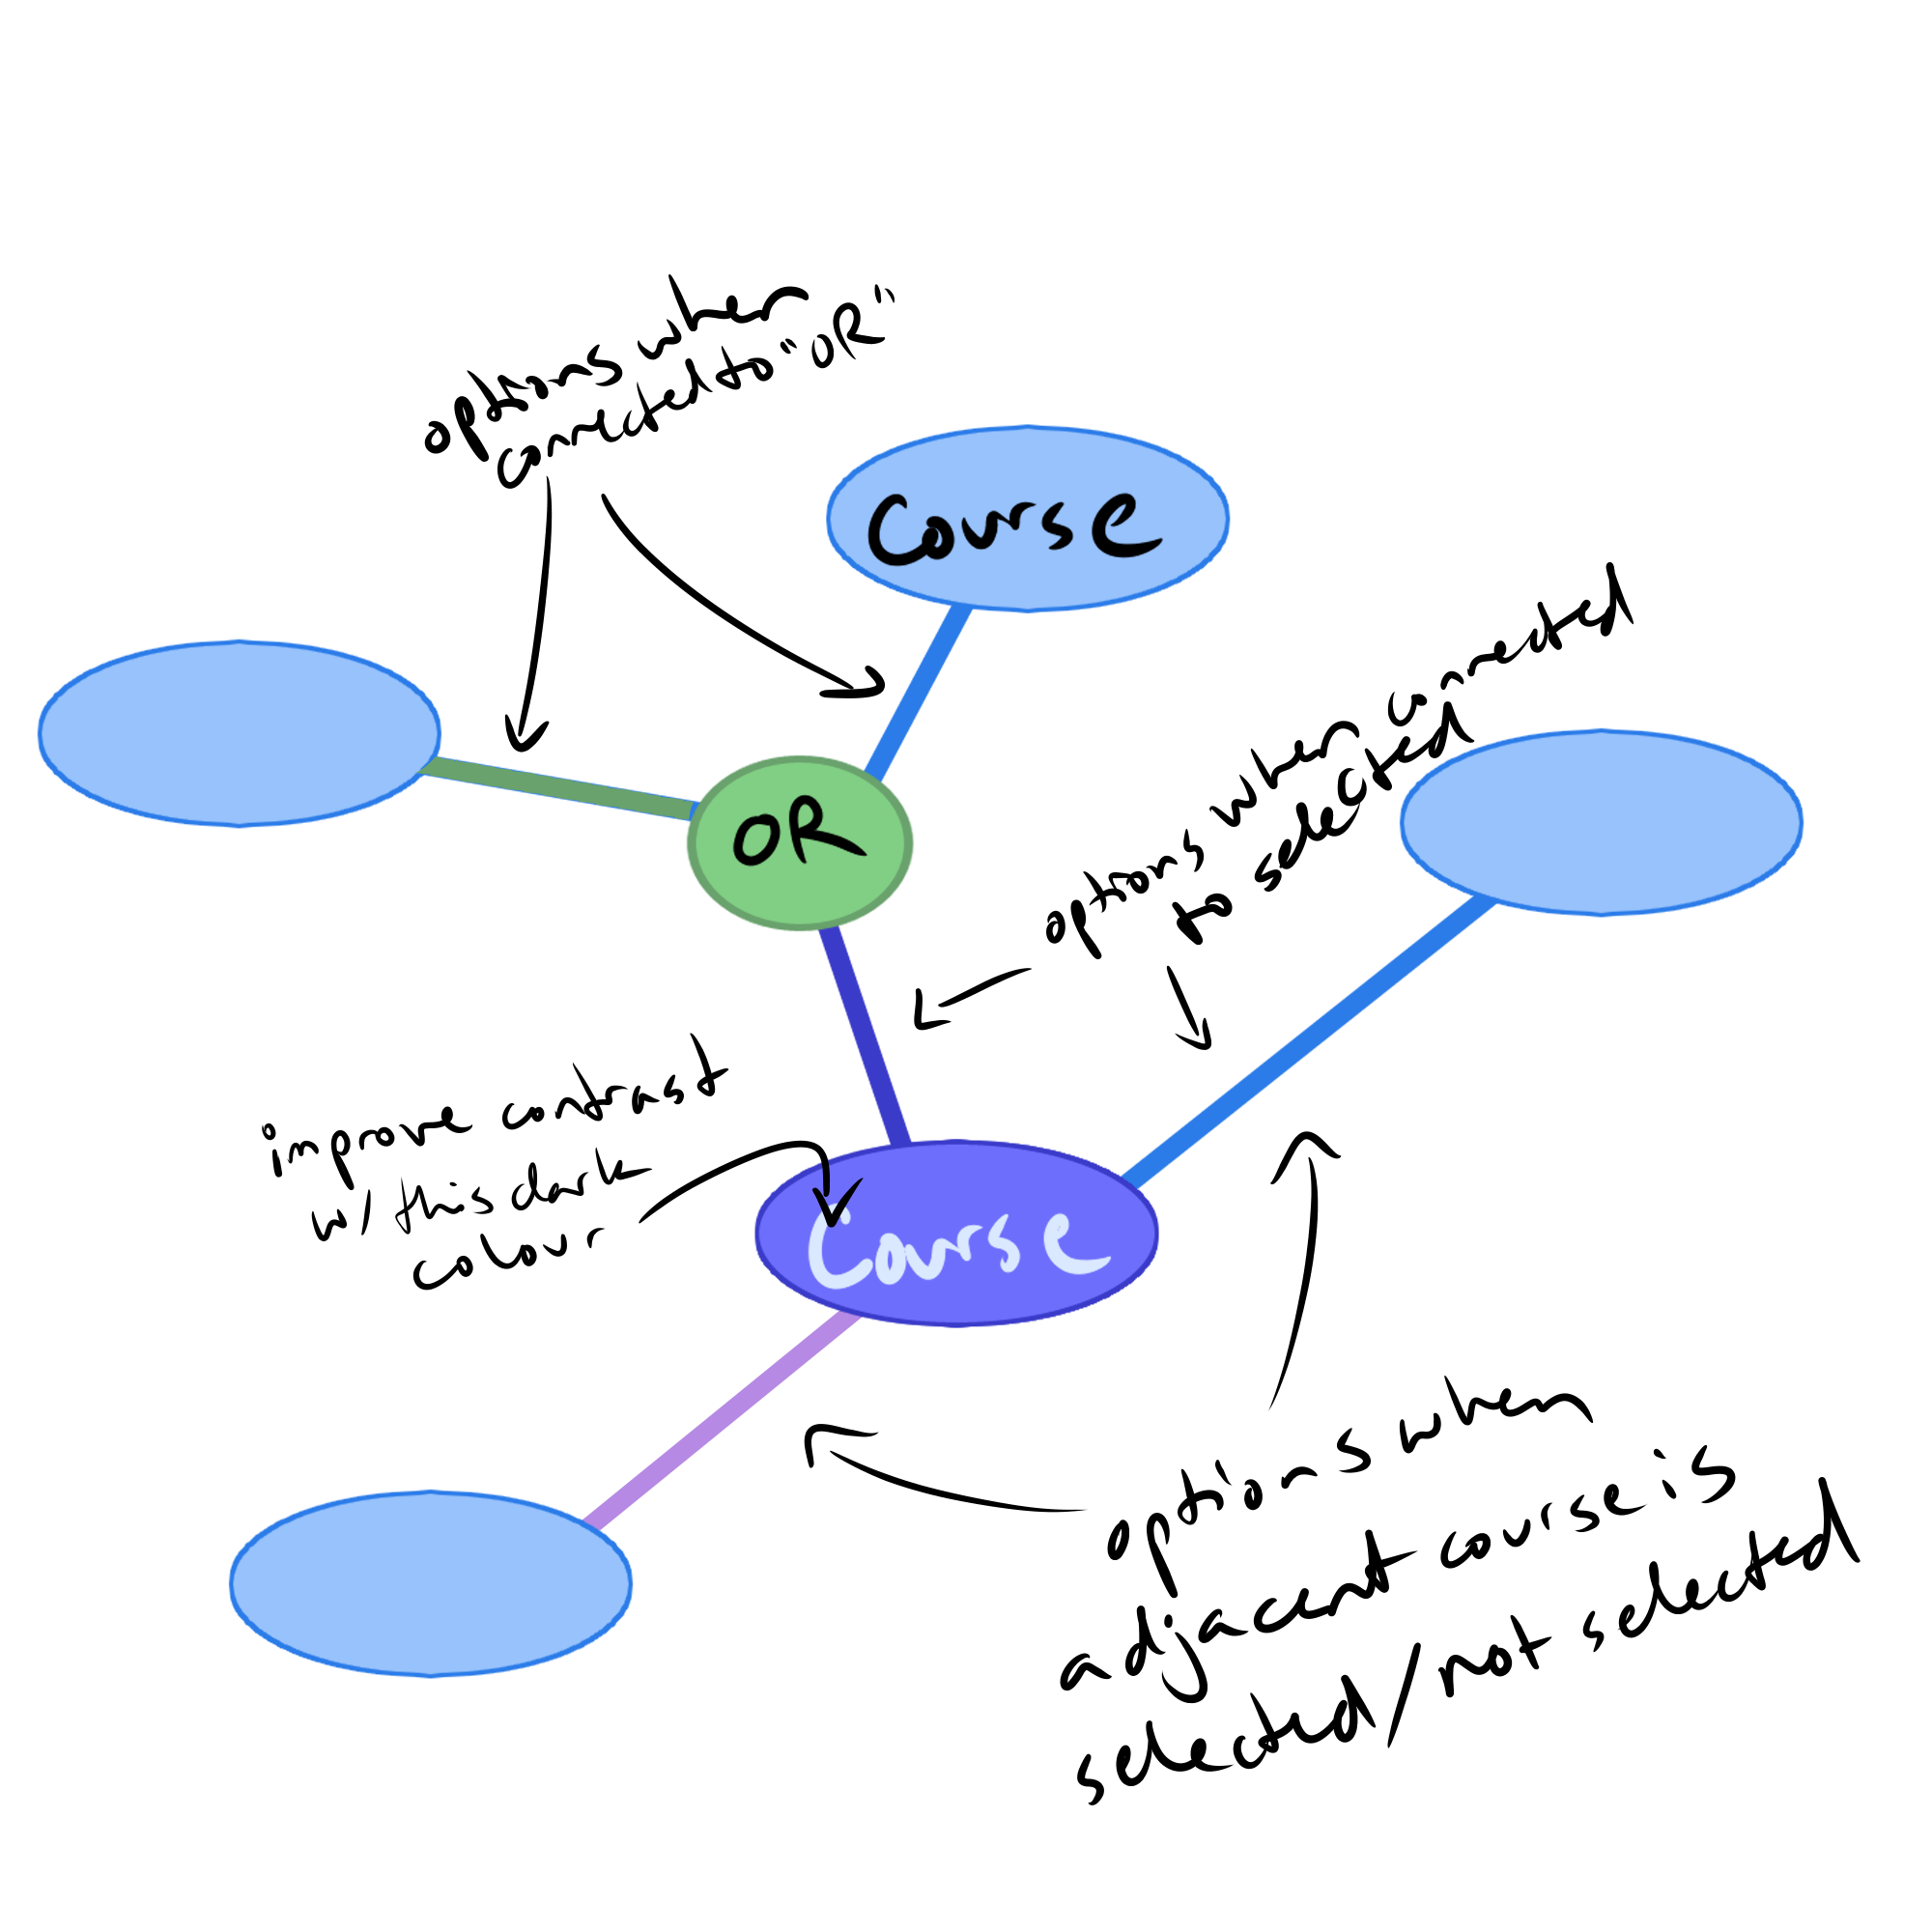 options when
connected to "OR"
Course
options when connected
to selected
OR
improve contrast
w/ this dark
colour
Course
options when
adjacent course is
selected/not selected